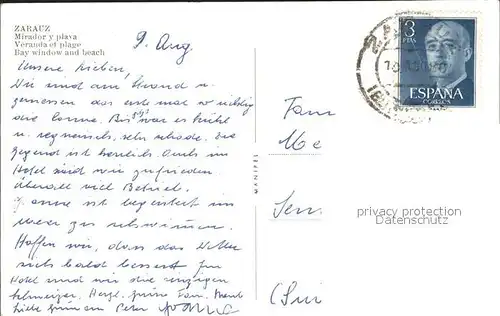 ZARAUZ
Mirador y playa
Veranda et plage
Bay window and beach
9. Aug.
Unsere Lieben!
Wir sind am Strand u.
geniessen das erste mal richtig
die Sonne. Bis jetzt war es kühl
u. regnerisch, sehr schade. Die
Gegend ist herrlich. Auch im
Hotel sind wir zufrieden
überall viel Betrieb.
ist begeistert im
Meer zu schwimmen.
Hoffen wir, dass das Wetter
sich bald bessert. Im
Hotel sind wir die einzigen
Schweizer. Herzl. Grüsse Fam.
Liebe Grüsse an Peter
MANIPEL
3
PTAS
ESPAÑA
CORREOS
Fam
Me
Sen.
privacy protection
Datenschutz